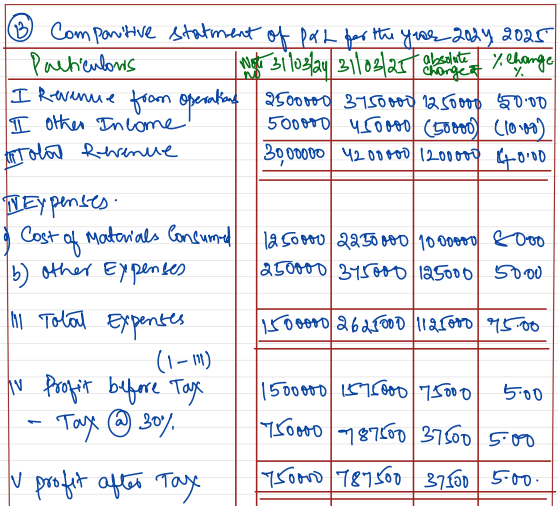 (13) Comparitive statment of P&L for the year 2024, 2025
Particulars Note No 31/03/24 31/03/25 absolute change ₹ % change %
I Revenue from operations 2500000 3750000 1250000 50.00
II Other Income 500000 450000 (50000) (10.00)
III Total Revenue 30,00000 4200000 1200000 40.00
IV Expenses.
a) Cost of Materials Consumed 1250000 2250000 1000000 8000
b) other Expenses 250000 375000 125000 50.00
III Total Expenses 1500000 2625000 1125000 75.00
(I - III)
IV Profit before Tax 1500000 1575000 75000 5.00
- Tax @ 30% 750000 787500 37500 5.00
V profit after Tax 750000 787500 37500 5.00.